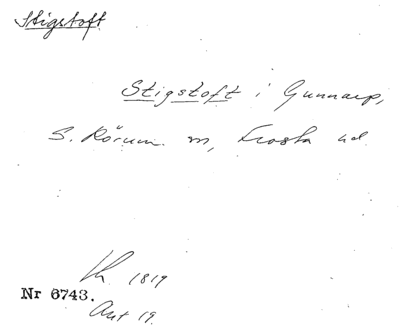 Stigstoft
Stigstoft i Gunnarp,
S. Rörum. m, Frosta hd
Lh 1819
Nr 6743.
Akt 19.